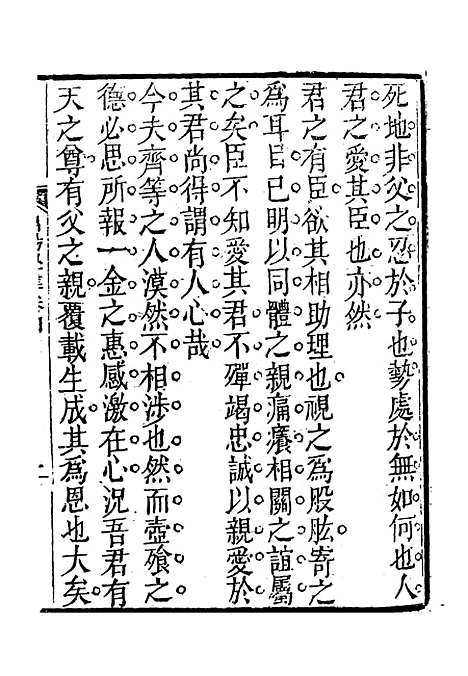 死地非父之忍於子也勢處於無如何也人
君之愛其臣也亦然
君之有臣欲其相助理也視之為股肱寄之
為耳目已明以同體之親痛癢相關之誼屬
之矣臣不知愛其君不殫竭忠誠以親愛於
其君尚得謂有人心哉
今夫齊等之人漠然不相涉也然而壺飱之
德必思所報一金之惠感激在心況吾君有
天之尊有父之親覆載生成其為恩也大矣